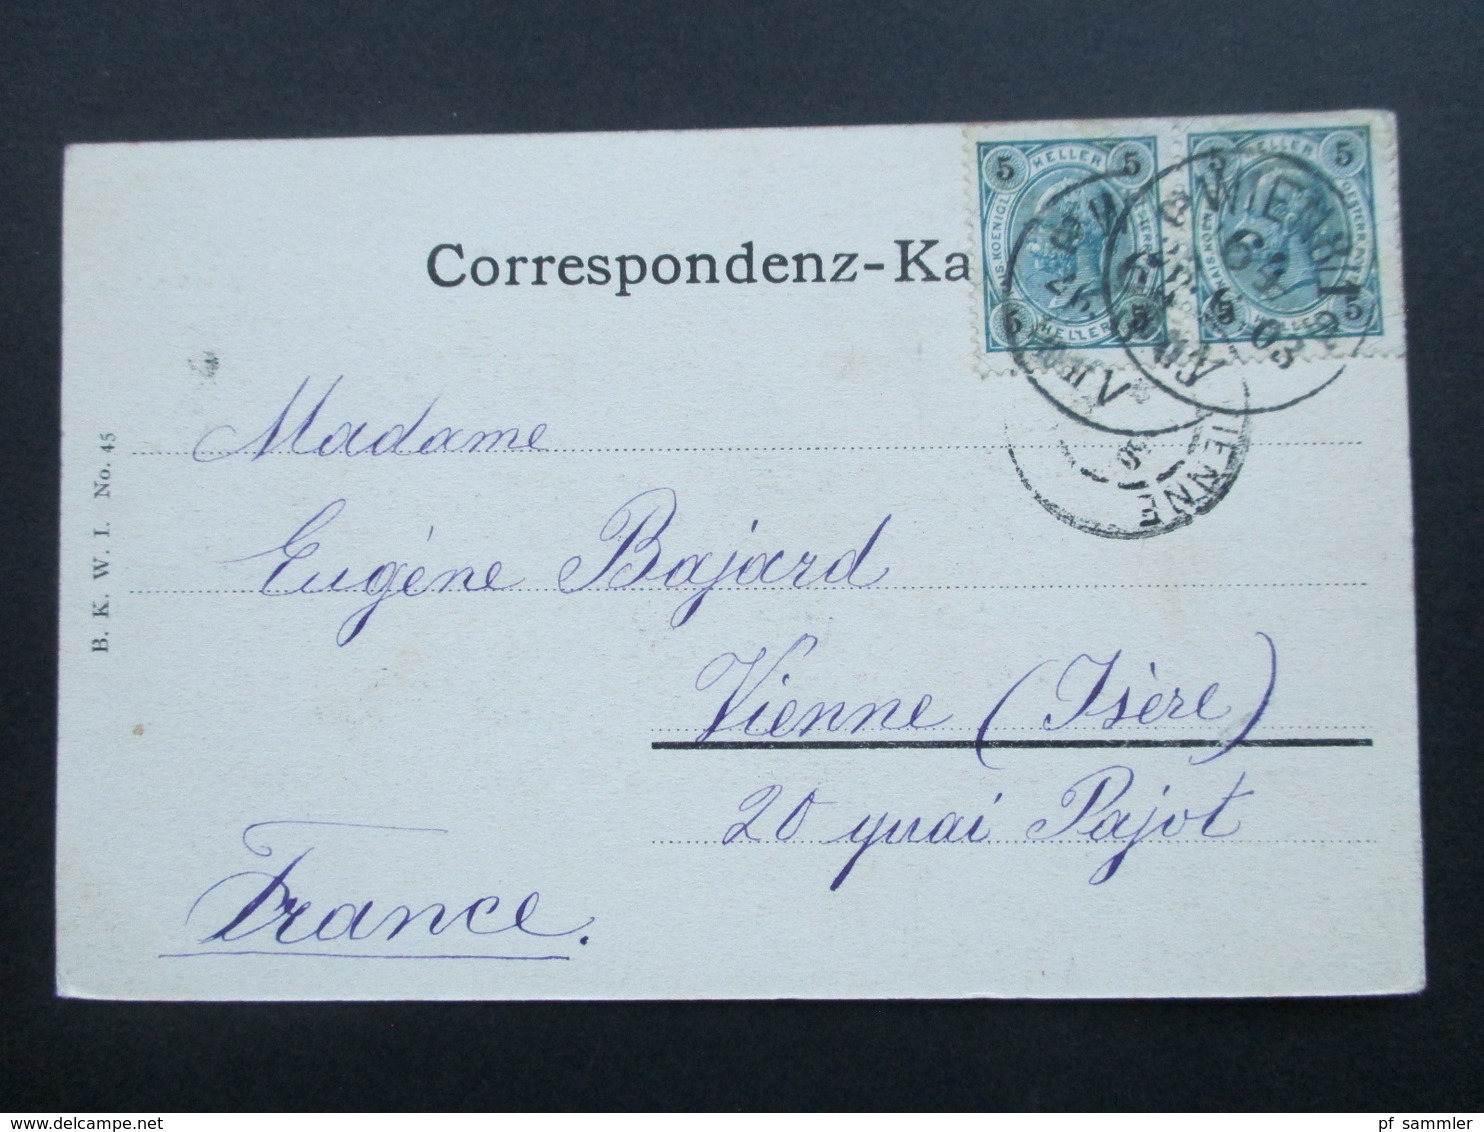 Correspondenz-Ka
5 HELLER 5
5 HELLER 5
5 HELLER 5
5 HELLER 5
WIEN
64
03
VIENNE
B. K. W. I. No. 45
Madame
Eugéne Bajard
Vienne (Isère)
20 quai Pajot
France.
pf_sammler